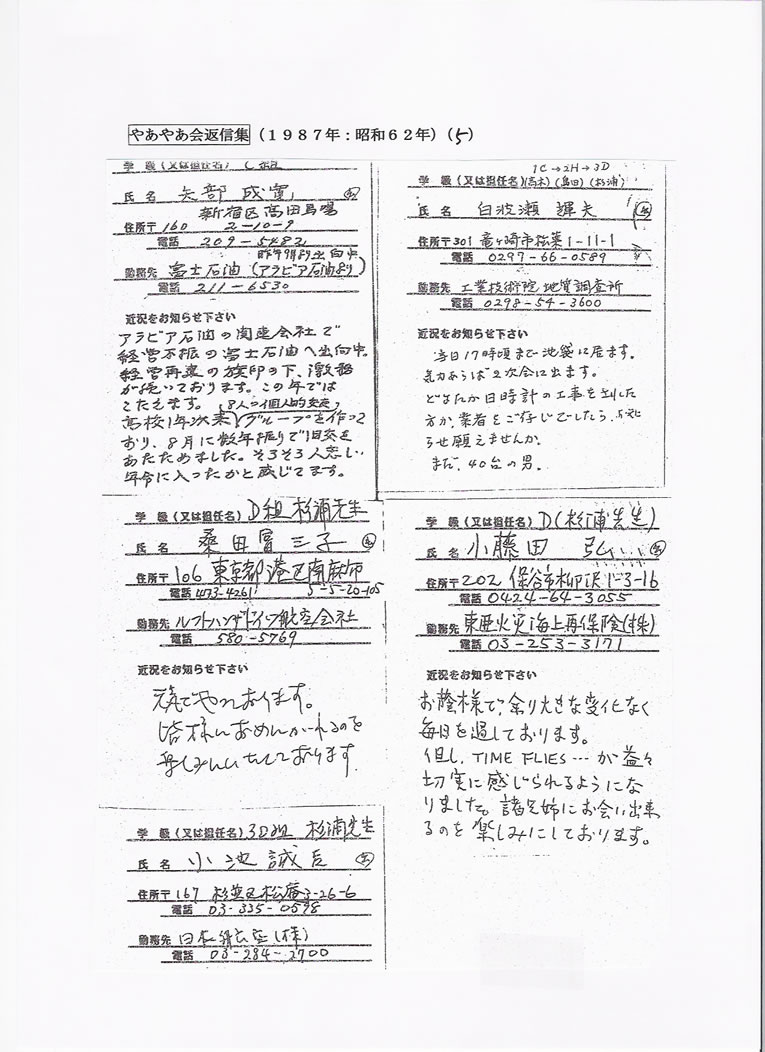 やあやあ会返信集（１９８７年：昭和６２年）（5）
学 級（又は担任名）
氏 名 矢部 成
新宿区高田馬場
住所〒160 2-10-9
電話 209-5482
昨年9月より出向中
勤務先 富士石油（アラビア石油より）
電話 211-6530
近況をお知らせ下さい
アラビア石油の関連会社で
経営不振の富士石油へ出向中。
経営再建の旗印の下、激務
が続いております。この年では
こたえます。（8人の個人的交遊）
高校1年次来グループを作って
おり、8月に数年振りで旧交を
あたためました。そろそろ人恋しい
年令に入ったかと感じてます。
1C→2H→3D
学 級（又は担任名）（高木）（島田）（杉浦）
氏 名 白波瀬 輝夫
住所〒301 竜ヶ崎市松葉1-11-1
電話 0297-66-0589
勤務先 工業技術院地質調査所
電話 0298-54-3600
近況をお知らせ下さい
当日17時頃まで池袋に居ます。
気力あらば2次会に出ます。
どなたか日時計の工事を
方か、業者をご存じでしたら、お知
らせ願えませんか。
まだ、40台の男。
学 級（又は担任名）D組 杉浦先生
氏 名 桑田冨三子
住所〒106 東京都港区南麻布
電話 473-4261 5-5-20-105
勤務先 ルフトハンザドイツ航空会社
電話 580-5769
近況をお知らせ下さい
元気でやっております。
皆様におめにかかれるのを
楽しみにいたしております。
学 級（又は担任名）D（杉浦先生）
氏 名 小藤田 弘
住所〒202 保谷市柳沢1-3-16
電話 0424-64-3055
勤務先 東亜火災海上再保険（株）
電話 03-253-3171
近況をお知らせ下さい
お蔭様で、余り大きな変化なく
毎日を過しております。
但し、TIME FLIES…が益々
切実に感じられるようにな
りました。諸兄姉にお会い出来
るのを楽しみにしております。
学 級（又は担任名）3D組 杉浦先生
氏 名 小池 誠
住所〒167 杉並区松庵3-26-6
電話 03-335-0598
勤務先 日本航空（株）
電話 03-284-2700